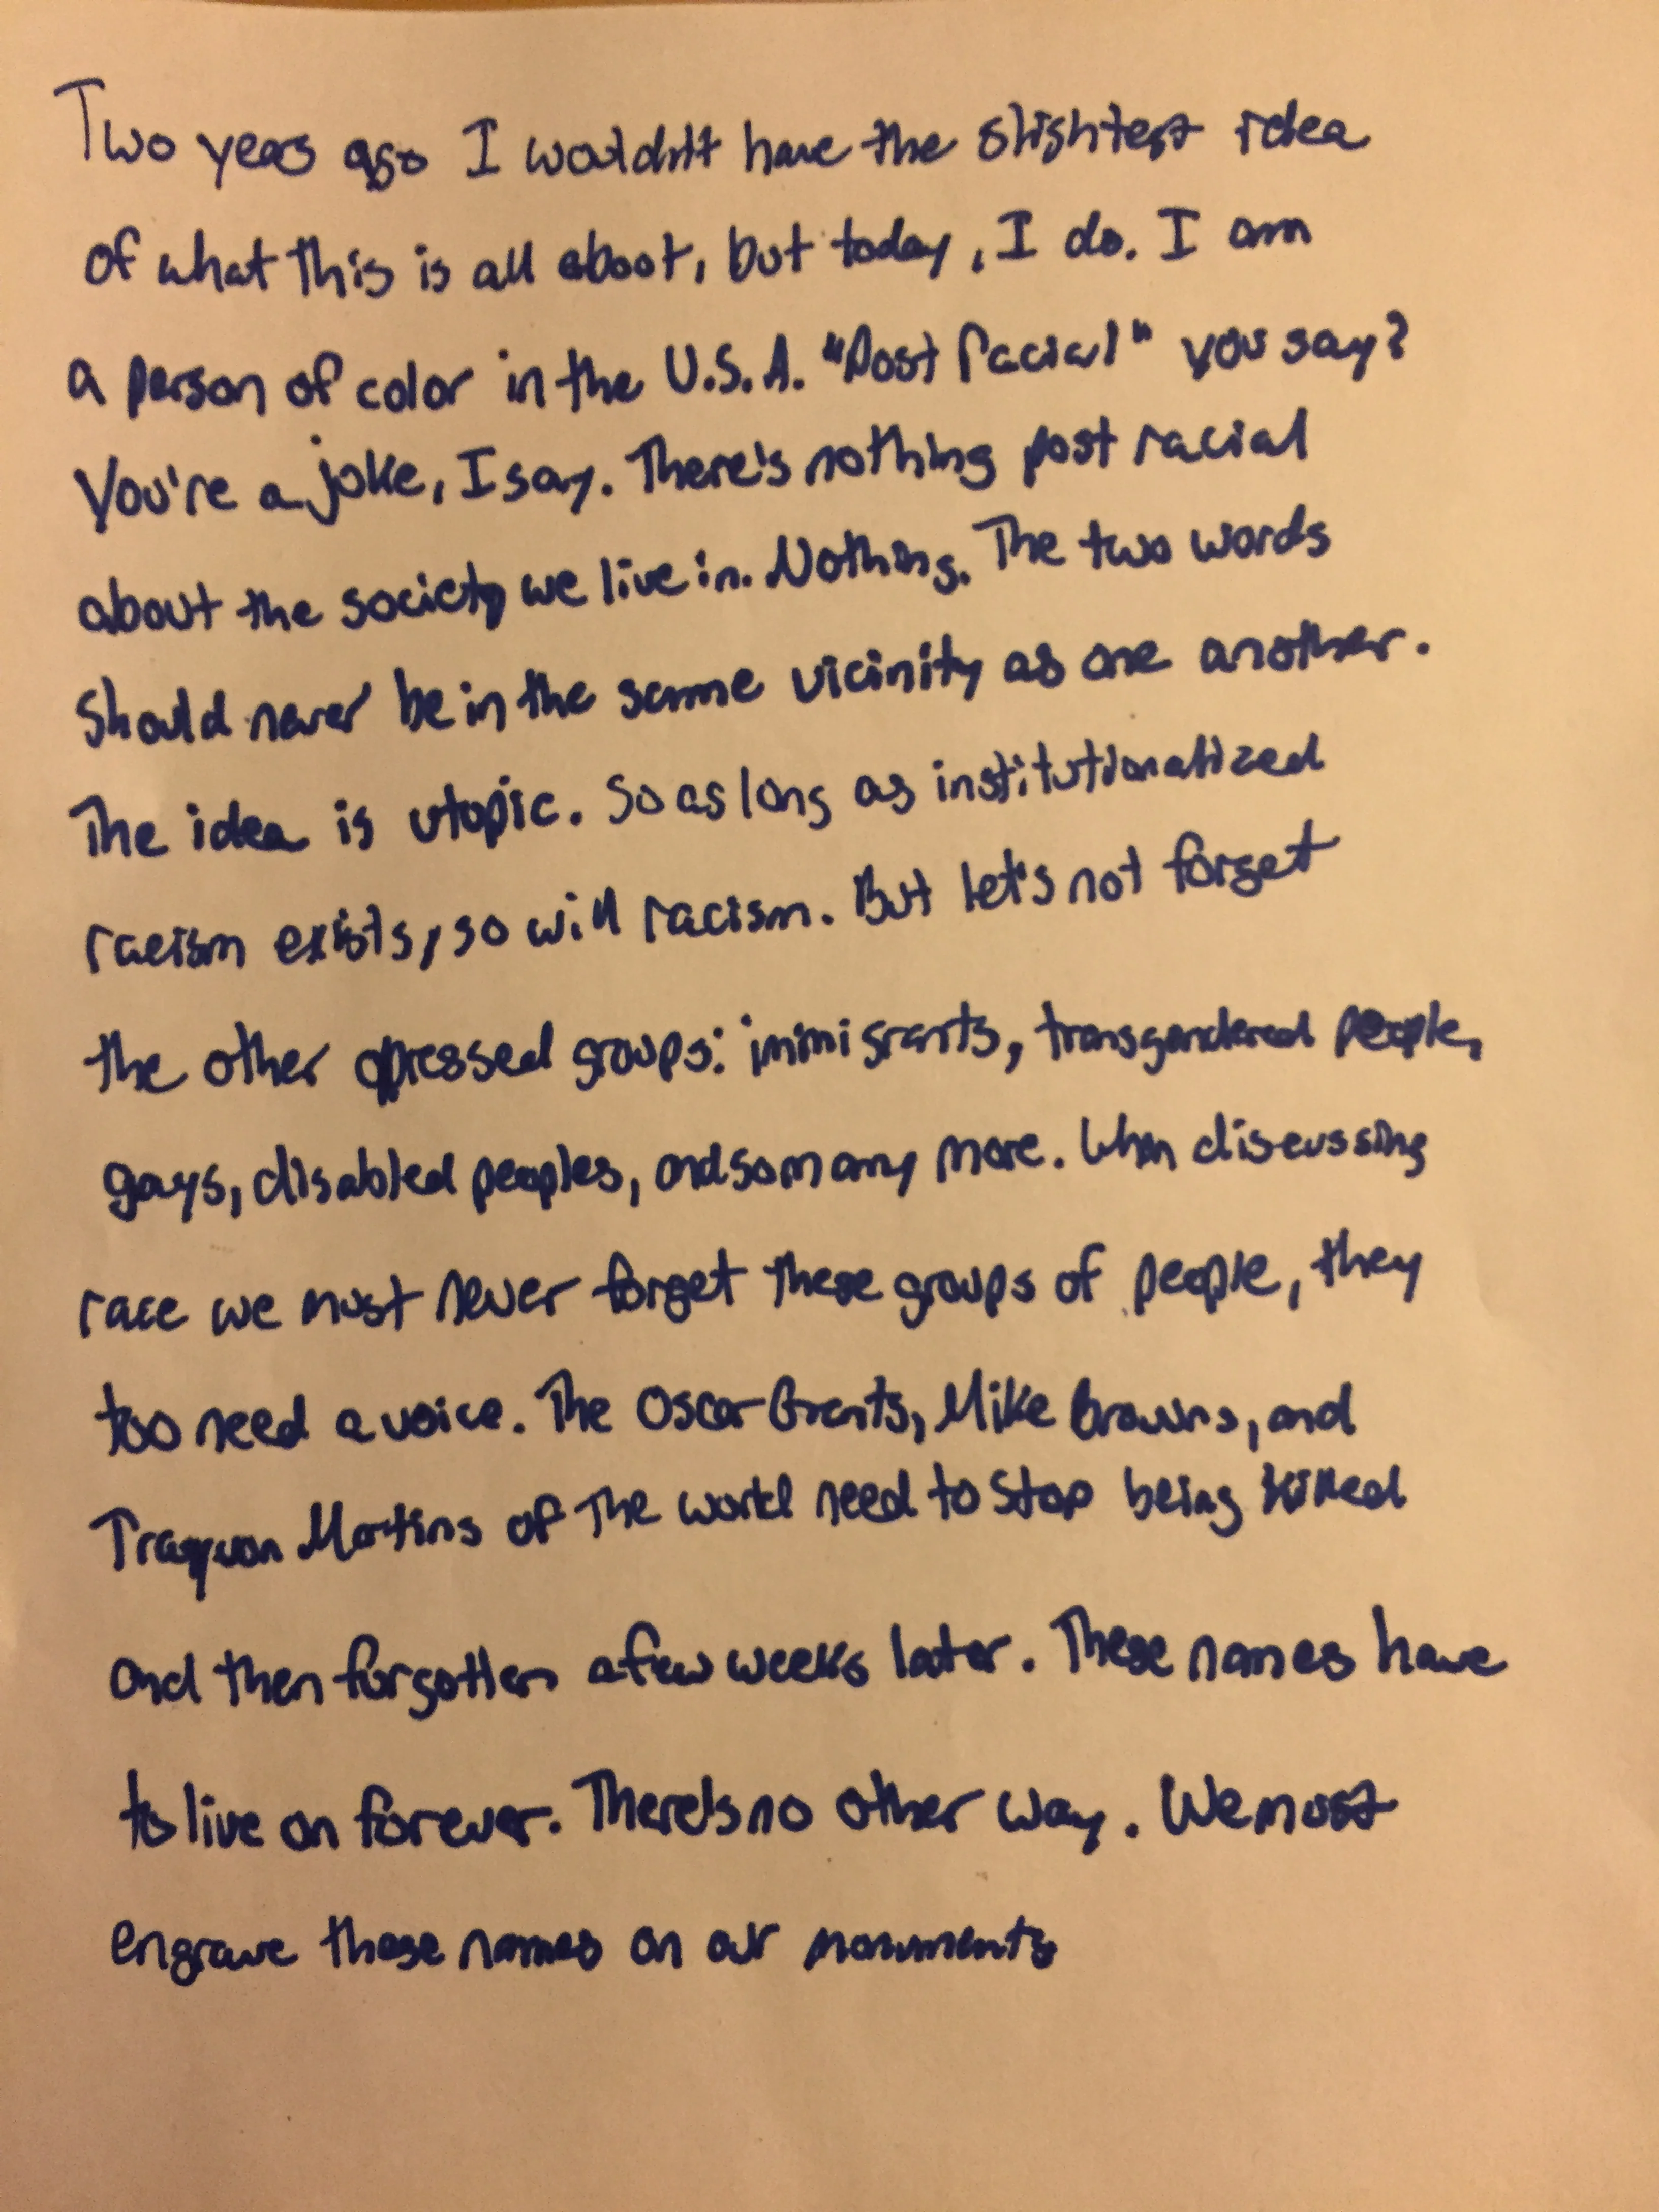 Two years ago I wouldn't have the slightest idea
of what this is all about, but today, I do. I am
a person of color in the U.S.A. "Post Racial" you say?
You're a joke, I say. There's nothing post racial
about the society we live in. Nothing. The two words
should never be in the same vicinity as one another.
The idea is utopic. So as long as institutionalized
racism exists, so will racism. But let's not forget
the other opressed groups: immigrants, transgendered people,
gays, disabled peoples, and so many more. When discussing
race we must never forget these groups of people, they
too need a voice. The Oscar Grants, Mike Browns, and
Trayvon Martins of the world need to stop being killed
and then forgotten a few weeks later. These names have
to live on forever. There's no other way. We must
engrave these names on our monuments